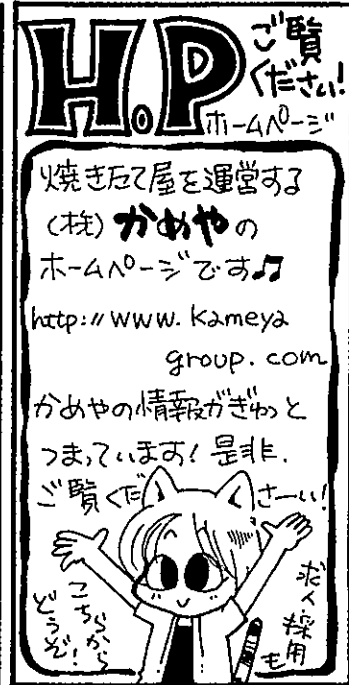 H.P
ホームページ
ご覧
ください!
焼きたて屋を運営する
(株)かめやの
ホームページです♫
http://www.kameya
group.com
かめやの情報がぎゅっと
つまっています! 是非、
ご覧くださーい!
こちらから
どうぞ!
求人採用
も